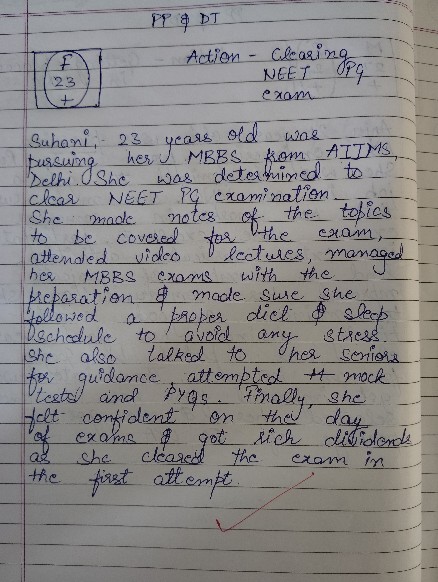 PP & DT
F
23
+
Action - Clearing
NEET PG
exam
Suhani, 23 years old was
pursuing her MBBS from AIIMS,
Delhi. She was determined to
clear NEET PG examination.
She made notes of the topics
to be covered for the exam,
attended video lectures, managed
her MBBS exams with the
preparation & made sure she
followed a proper diet & sleep
schedule to avoid any stress.
She also talked to her seniors
for guidance attempted mock
tests and PYQs. Finally, she
felt confident on the day
of exams & got rich dividends
as she cleared the exam in
the first attempt.